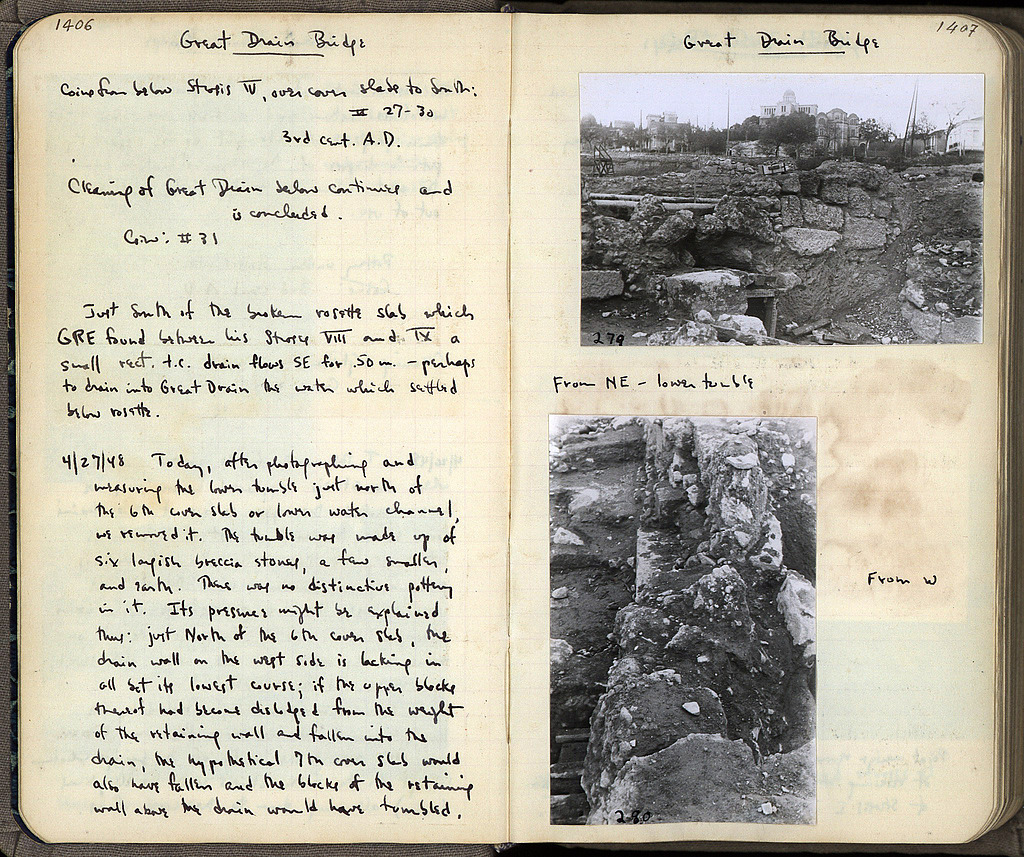 1406
Great Drain Bridge
Coins from below Storey IV, over cover slabs to South:
II 27-30
3rd cent. A.D.
Cleaning of Great Drain below continues and
is concluded.
Coin: # 31
Just South of the broken rosette slab which
GRE found between his Storeys VIII and IX a
small rect. t.c. drain flows SE for .50 m. – perhaps
to drain into Great Drain the water which settled
below rosette.
4/27/48 Today, after photographing and
measuring the lower tumble just north of
the 6th cover slab or lower water channel,
we removed it. The tumble was made up of
six largish breccia stones, a few smaller,
and earth. There was no distinctive pottery
in it. Its presence might be explained
thus: just North of the 6th cover slab, the
drain wall on the west side is lacking in
all but its lowest course; if the upper blocks
thereof had become dislodged from the weight
of the retaining wall and fallen into the
drain, the hypothetical 7th cover slab would
also have fallen and the blocks of the retaining
wall above the drain would have tumbled.
1407
Great Drain Bridge
279
From NE – lower tumble
From W
280